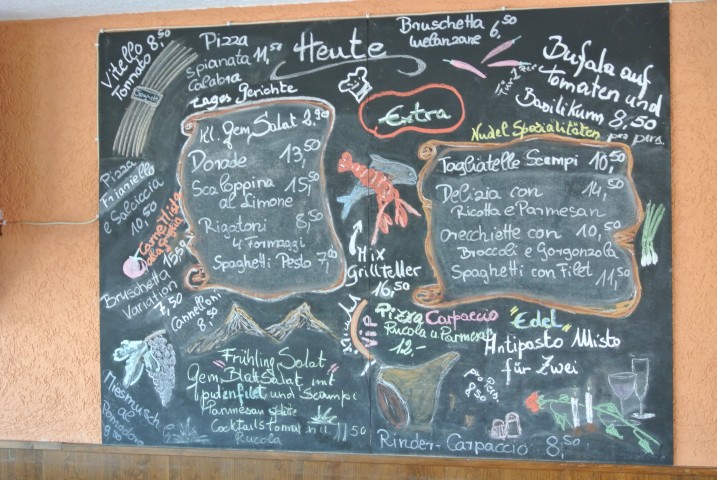 Vitello 8,50
Tonnato
Pizza
spianata 11,50
Calabra
Heute
Bruschetta
Melanzane 6,50
Bufala auf
Tomaten und
Basilikum 8,50
pro pers.
Tages Gerichte
Kl. Gem. Salat 2.90
Dorade 13,50
Scaloppina 15,50
al Limone
Rigatoni 8,50
4 Formaggi
Spaghetti Pesto 7,00
Extra
Nudel Spezialitäten
Tagliatelle Scampi 10,50
Delizia con 14,50
Ricotta e Parmesan
Orecchiette con 10,50
Broccoli e Gorgonzola
Spaghetti con Filet 11,50
Pizza
Friarielle
e Salciccia
10,50
Carne Mista
alla Griglia
15,50
Bruschetta
Variation
7,50
Cannelloni
8,50
Mix
Grillteller
16,50
VIP
Pizza Carpaccio
Rucola u Parmesan
12,-
"Edel"
Antipasto Misto
für Zwei
pro Pers.
8,50
"Frühling Salat"
Gem. Blatt Salat mit
Putenfilet und Scampi
Parmesan
Cocktailstomaten
Rucola
11,50
Miesmuscheln
Pomodoro
Rinder-Carpaccio 8,50